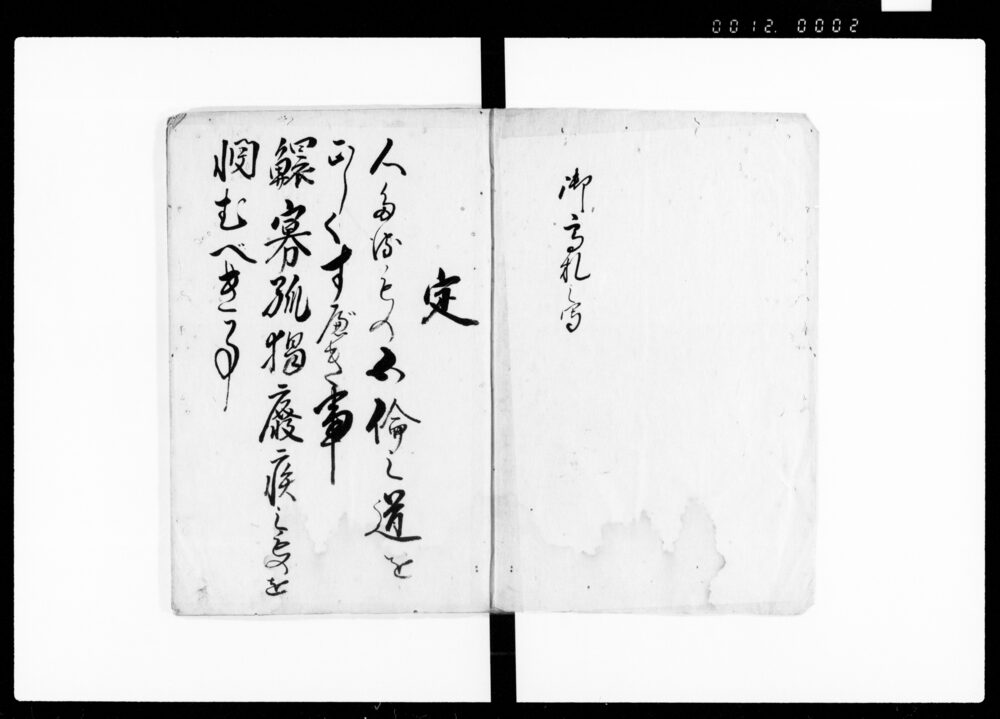 0012.0002
御高札之写
定
人たるもの五倫之道を
正しくすべき事
鰥寡孤獨廢疾之ものを
憫むべき事